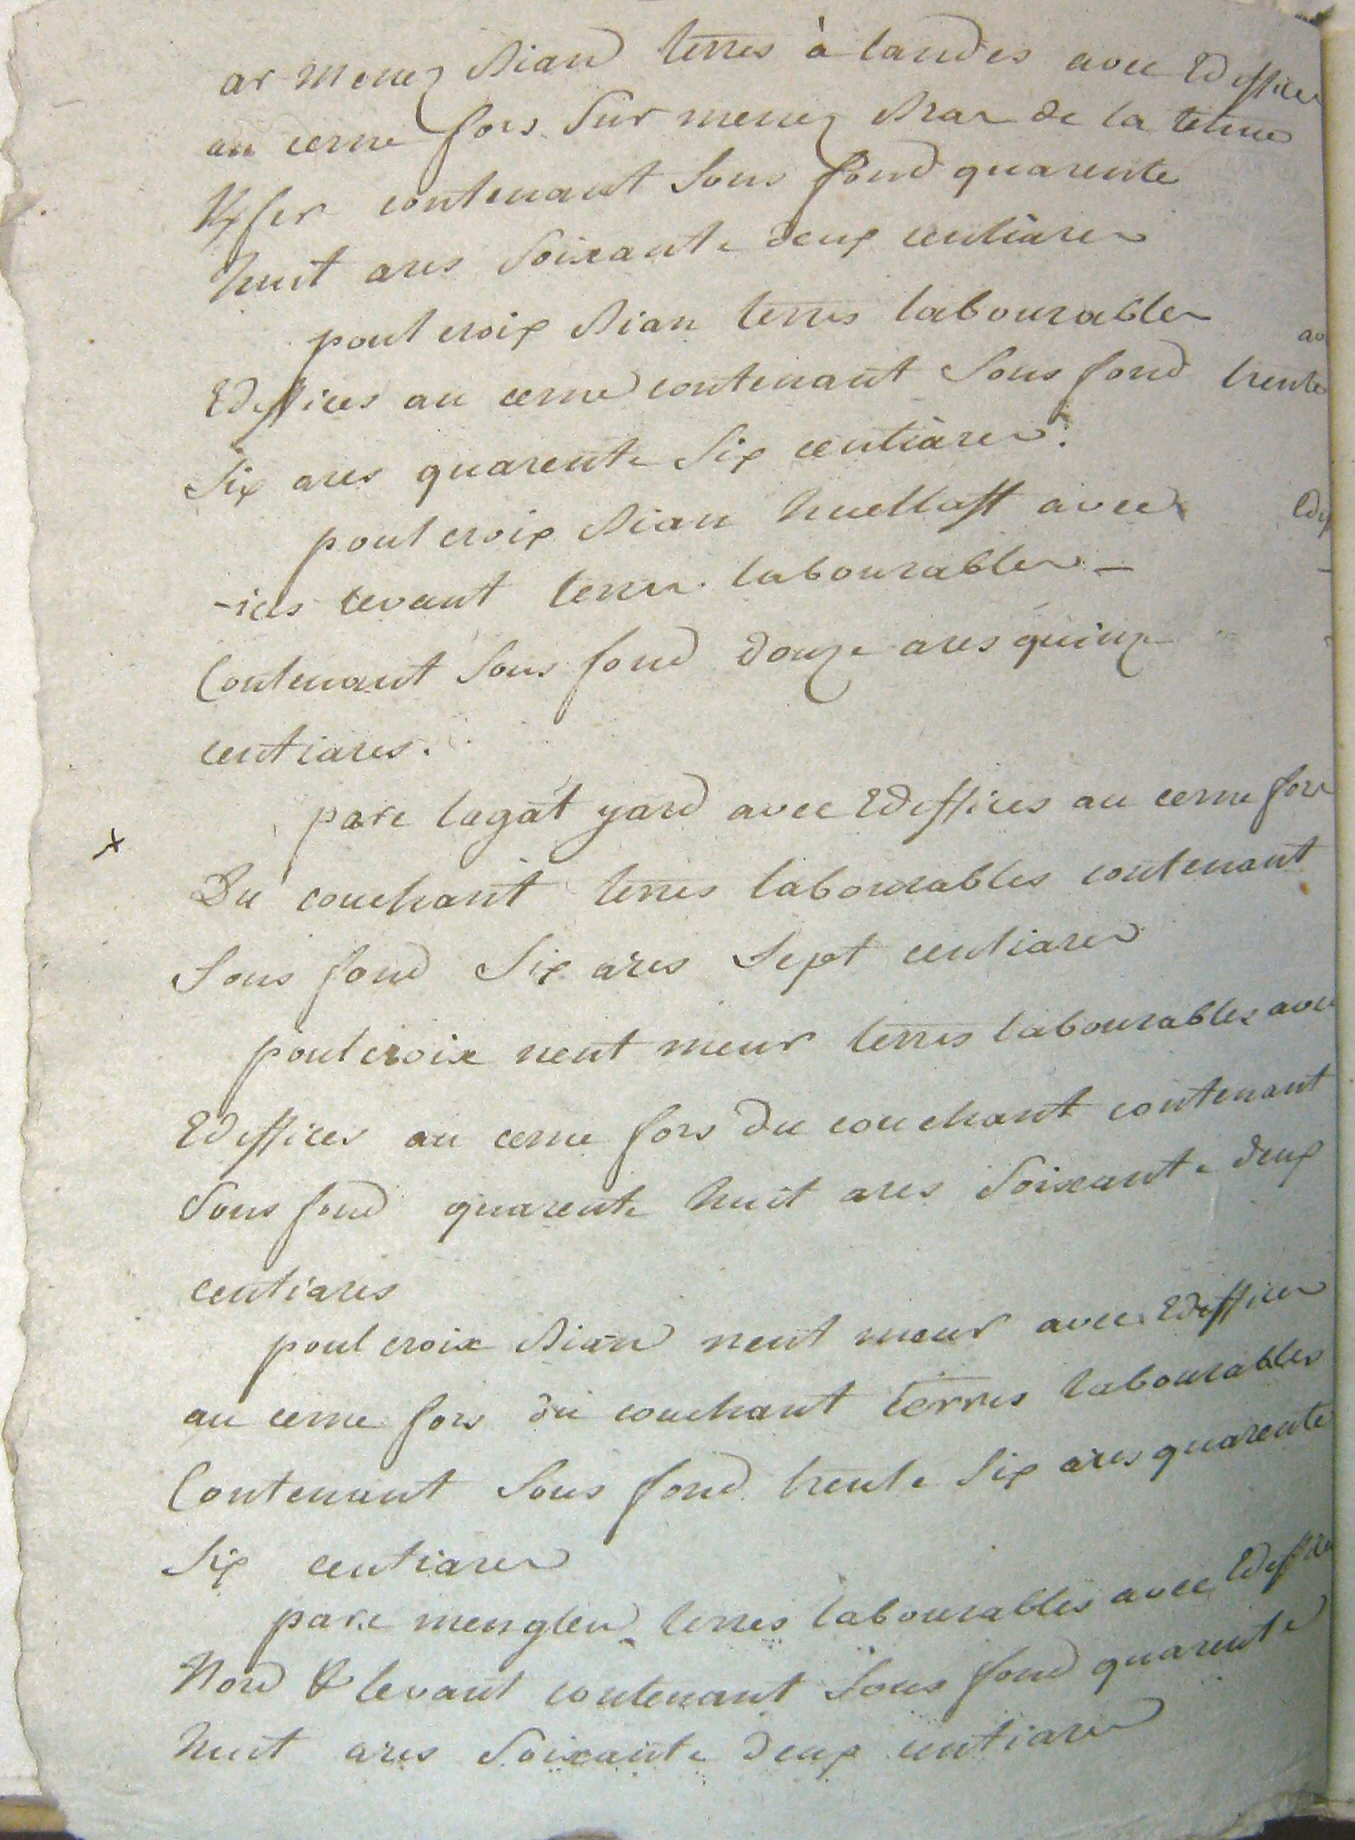 ar menez Bian terres à landes avec Ediffices
au cerne fors Sur menez Bras de la tenue
Kfer contenant Sous fond quarente
huit ares Soixante deux centiares
poul croix Bian terres labourables av
Ediffices au cerne contenant Sous fond trente
Six ares quarente Six centiares.
poul croix Bian huellaff avec Edif
-ices levant terres labourables -
Contenant Sous fond douze ares quinze
centiares.
parc lagat yard avec Ediffices au cerne fors
Du couchant terres labourables contenant
Sous fond Six ares Sept centiares
poulcroix nent meur terres labourables avec
Ediffices au cerne fors du couchant contenant
Sous fond quarente huit ares Soixante deux
centiares
poul croix Bian nent meur avec Ediffices
au cerne fors du couchant terres labourables
Contenant Sous fond trente Six ares quarente
Six centiares
parc mengleu terres labourables avec Ediffices
Nord & levant contenant Sous fond quarente
huit ares Soixante deux centiares